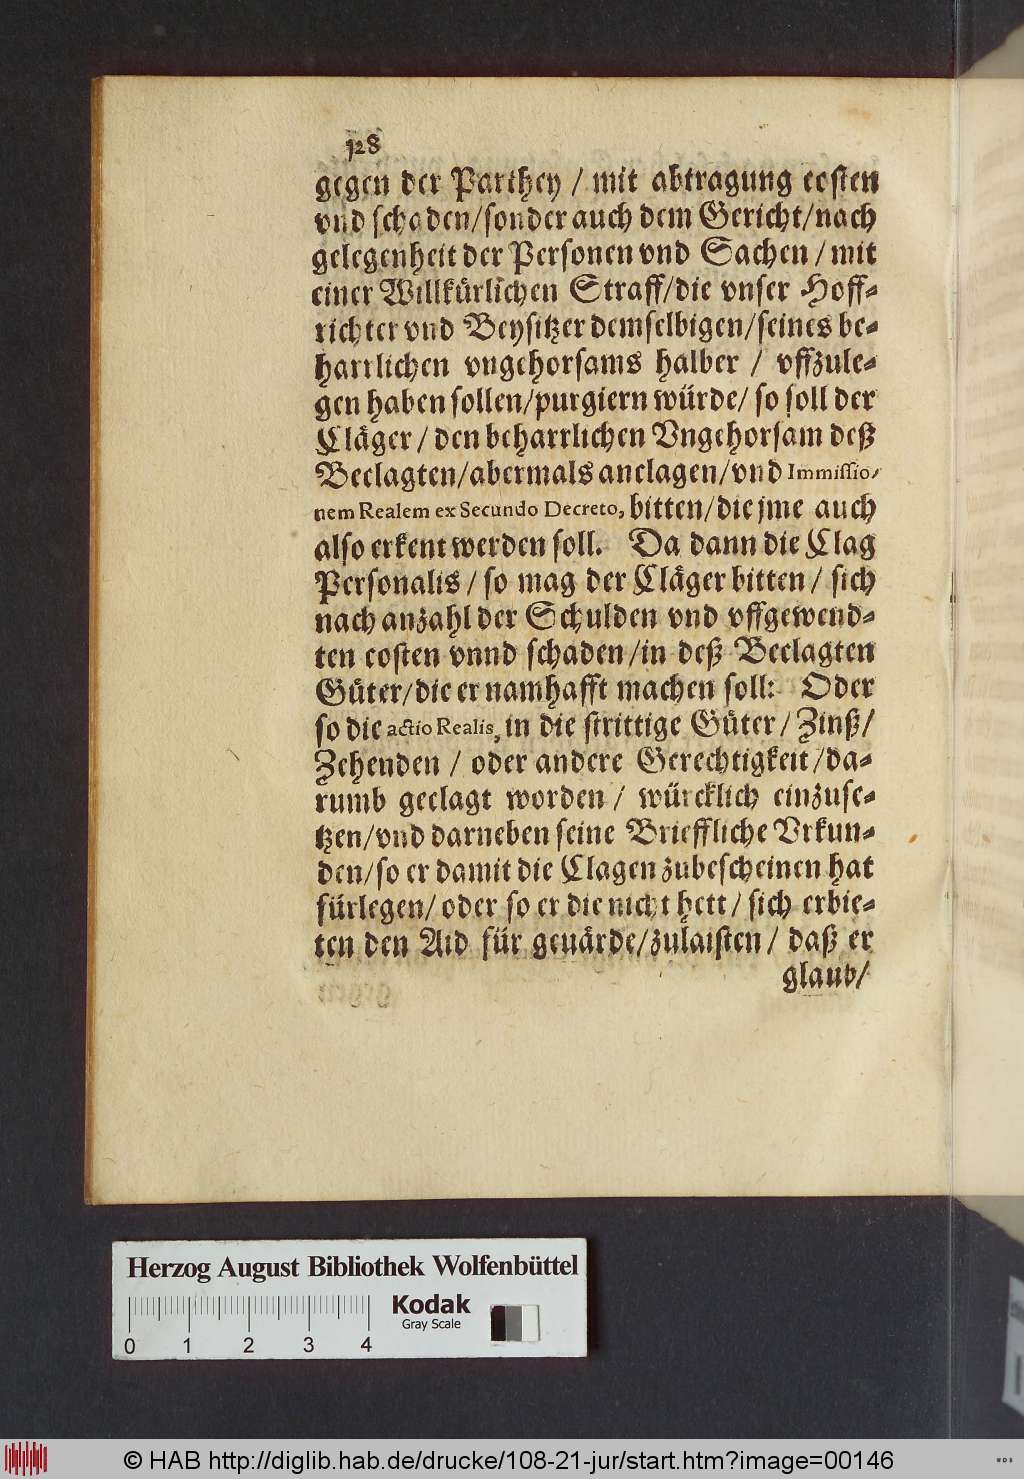 128
gegen der Parthey / mit abtragung costen
vnd schaden/sonder auch dem Gericht/nach
gelegenheit der Personen vnd Sachen / mit
einer Willkürlichen Straff/die vnser Hoff-
richter vnd Beysitzer demselbigen/seines be-
harrlichen vngehorsams halber / vffzule-
gen haben sollen/purgiern würde/ so soll der
Cläger / den beharrlichen Vngehorsam deß
Beclagten/abermals anclagen/vnd Immissio-
nem Realem ex Secundo Decreto, bitten/die jme auch
also erkent werden soll. Da dann die Clag
Personalis / so mag der Cläger bitten / sich
nach anzahl der Schulden vnd vffgewend-
ten costen vnnd schaden/in deß Beclagten
Güter/die er namhafft machen soll: Oder
so die actio Realis, in die strittige Güter / Zinß/
Zehenden / oder andere Gerechtigkeit/da-
rumb geclagt worden / würcklich einzuse-
tzen/vnd darneben seine Brieffliche Vrkun-
den/so er damit die Clagen zubescheinen hat
fürlegen/ oder so er die nicht hett / sich erbie-
ten den Aid für geuärde/zulaisten / daß er
glaub/
Herzog August Bibliothek Wolfenbüttel
Kodak
Gray Scale
0 1 2 3 4
© HAB http://diglib.hab.de/drucke/108-21-jur/start.htm?image=00146